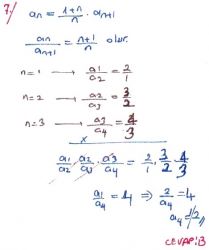 7/ a_n = \frac{1+n}{n} \cdot a_{n+1}
\frac{a_n}{a_{n+1}} = \frac{n+1}{n} olur.
n=1 → \frac{a_1}{a_2} = \frac{2}{1}
n=2 → \frac{a_2}{a_3} = \frac{3}{2}
n=3 → \frac{a_3}{a_4} = \frac{4}{3}
x
\frac{a_1}{a_2} \cdot \frac{a_2}{a_3} \cdot \frac{a_3}{a_4} = \frac{2}{1} \cdot \frac{3}{2} \cdot \frac{4}{3}
\frac{a_1}{a_4} = 4 ⇒ \frac{2}{a_4} = 4
a_4 = 1/2
CEVAP: B